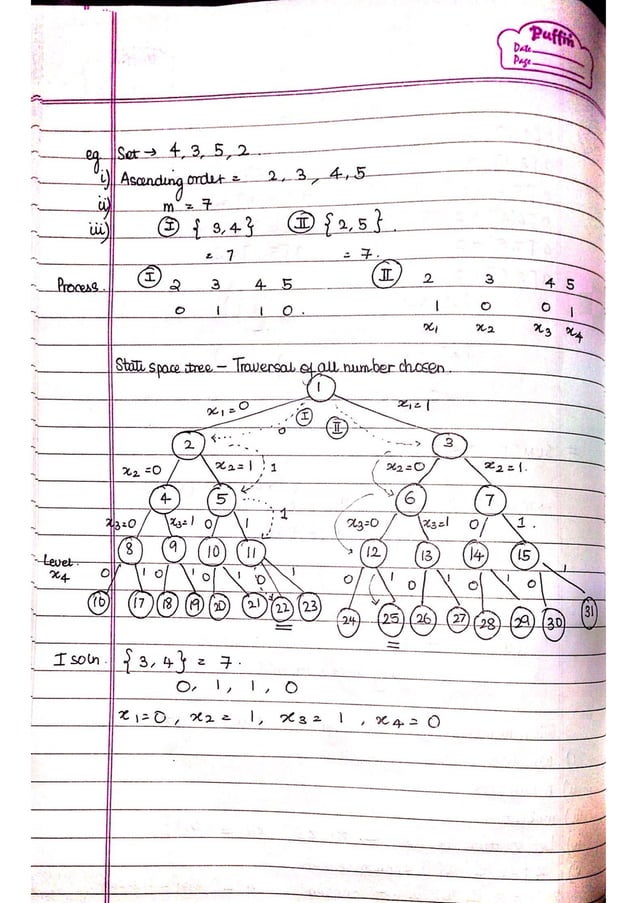 Puffin
Date
Page
eg Set → 4, 3, 5, 2.
i) Ascending order = 2, 3, 4, 5
ii) m = 7
iii) I { 3, 4 } II { 2, 5 }.
= 7 = 7.
Process. I 2 3 4 5 II 2 3 4 5
0 1 1 0. 1 0 0 1
x1 x2 x3 x4
State space tree – Traversal of all number chosen.
1
x1=0 I II x1=1
0
2 3
x2=0 x2=1 1 x2=0 x2=1.
4 5 1 6 7
x3=0 x3=1 0 1 x3=0 x3=1 0 1.
8 9 10 11 12 13 14 15
Level x4 0 1 0 1 0 1 0 1 0 1 0 1 0 1 0 1
16 17 18 19 20 21 22 23 24 25 26 27 28 29 30 31
I soln. {3, 4} = 7.
0, 1, 1, 0
x1=0, x2= 1, x3= 1, x4=0